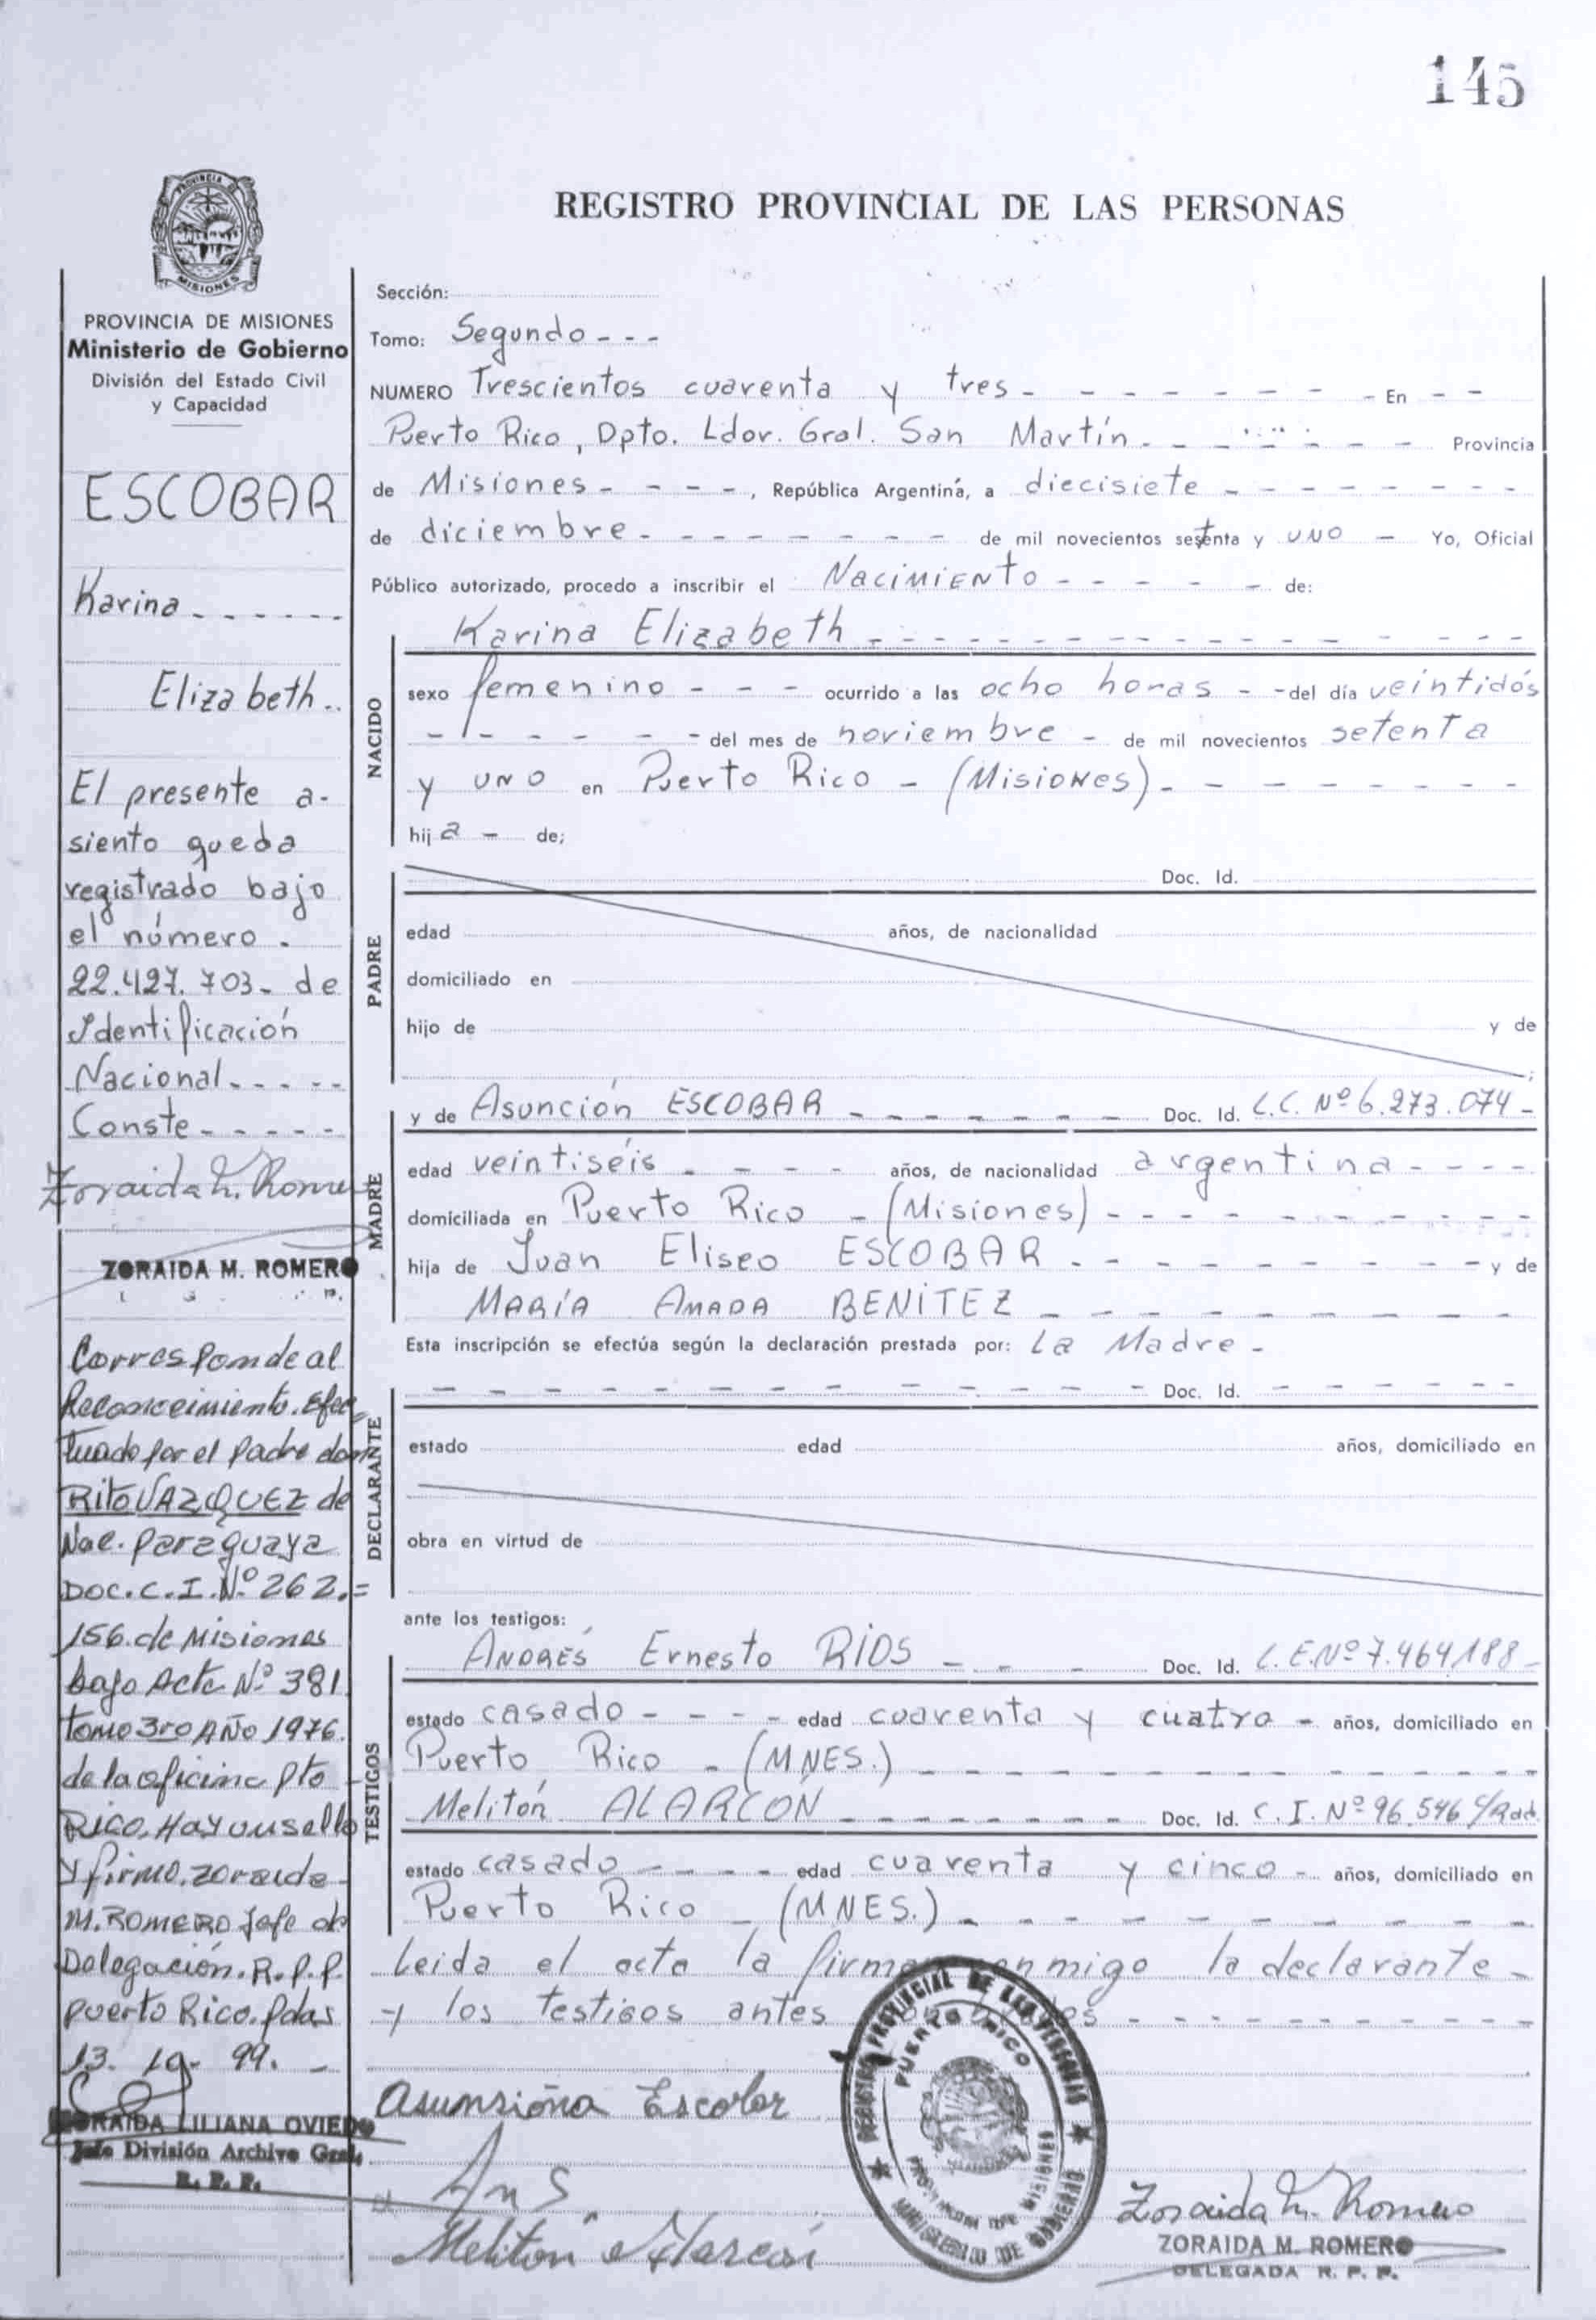 145
PROVINCIA DE
MISIONES
REGISTRO PROVINCIAL DE LAS PERSONAS
PROVINCIA DE MISIONES
Ministerio de Gobierno
División del Estado Civil
y Capacidad
ESCOBAR
Karina - - - - - -
Elizabeth..
El presente a-
siento queda
registrado bajo
el número.
22.427.703- de
Identificación
Nacional - - - - -
Conste - - - - -
Zoraida M. Romero
ZORAIDA M. ROMERO
Corresponde al
Reconocimiento. Efec
tuado por el Padre don
Rito VAZQUEZ de
Nac. Paraguaya
DOC. C. I. Nº 262.=
156. de Misiones
bajo Acta Nº 381
tomo 3ro AÑO 1976.
de la oficina Pto
RICO. Hay un sello
y firma. Zoraida
M. ROMERO Jefe de
Delegación. R.P.P.
Puerto Rico. Pdas
13. 10. 99. -
ZORAIDA LILIANA OVIEDO
Jefe División Archivo Gral.
R. P. P.
Sección:
Tomo: Segundo - - -
NUMERO Trescientos cuarenta y tres - - - - - - - - En - -
Puerto Rico, Dpto. Ldor. Gral. San Martín - - - - - - Provincia
de Misiones - - - -, República Argentina, a diecisiete - - - - - - - -
de diciembre - - - - - - - - de mil novecientos setenta y uno - Yo, Oficial
Público autorizado, procedo a inscribir el Nacimiento - - - - - de:
NACIDO
Karina Elizabeth - - - - - - - - - - - - - - -
sexo femenino - - - ocurrido a las ocho horas - - del día veintidós
- - - - - - del mes de noviembre - de mil novecientos setenta
y uno en Puerto Rico - (Misiones) - - - - - - - -
hija - de;
PADRE
Doc. Id.
edad años, de nacionalidad
domiciliado en
hijo de y de
;
MADRE
y de Asunción ESCOBAR - - - - - - - Doc. Id. L.C. Nº 6.273.074 -
edad veintiséis - - - - años, de nacionalidad argentina - - - -
domiciliada en Puerto Rico - (Misiones) - - - - - - - - - -
hija de Juan Eliseo ESCOBAR - - - - - - - - - y de
MARÍA AMADA BENÍTEZ - - - - - - - - - -
Esta inscripción se efectúa según la declaración prestada por: La Madre -
DECLARANTE
- - - - - - - - - - - - - Doc. Id. - - - - - -
estado edad años, domiciliado en
obra en virtud de
ante los testigos:
TESTIGOS
ANDRÉS Ernesto RÍOS - - - Doc. Id. L.E. Nº 7.464.188 -
estado casado - - - - edad cuarenta y cuatro - años, domiciliado en
Puerto Rico - (MNES.) - - - - - - - - - - - -
Melitón ALARCÓN - - - - - - - - Doc. Id. C. I. Nº 96.546 c/Rad.
estado casado - - - - edad cuarenta y cinco - años, domiciliado en
Puerto Rico - (MNES.) - - - - - - - - - -
Leída el acta la firman conmigo la declarante -
y los testigos antes - - - - - - - - - -
Asunsiona Escobar
Melitón Alarcón
REGISTRO PROVINCIAL DE LAS PERSONAS
PUERTO RICO
PROVINCIA DE MISIONES
MINISTERIO DE GOBIERNO
Zoraida M. Romero
ZORAIDA M. ROMERO
DELEGADA R. P. P.